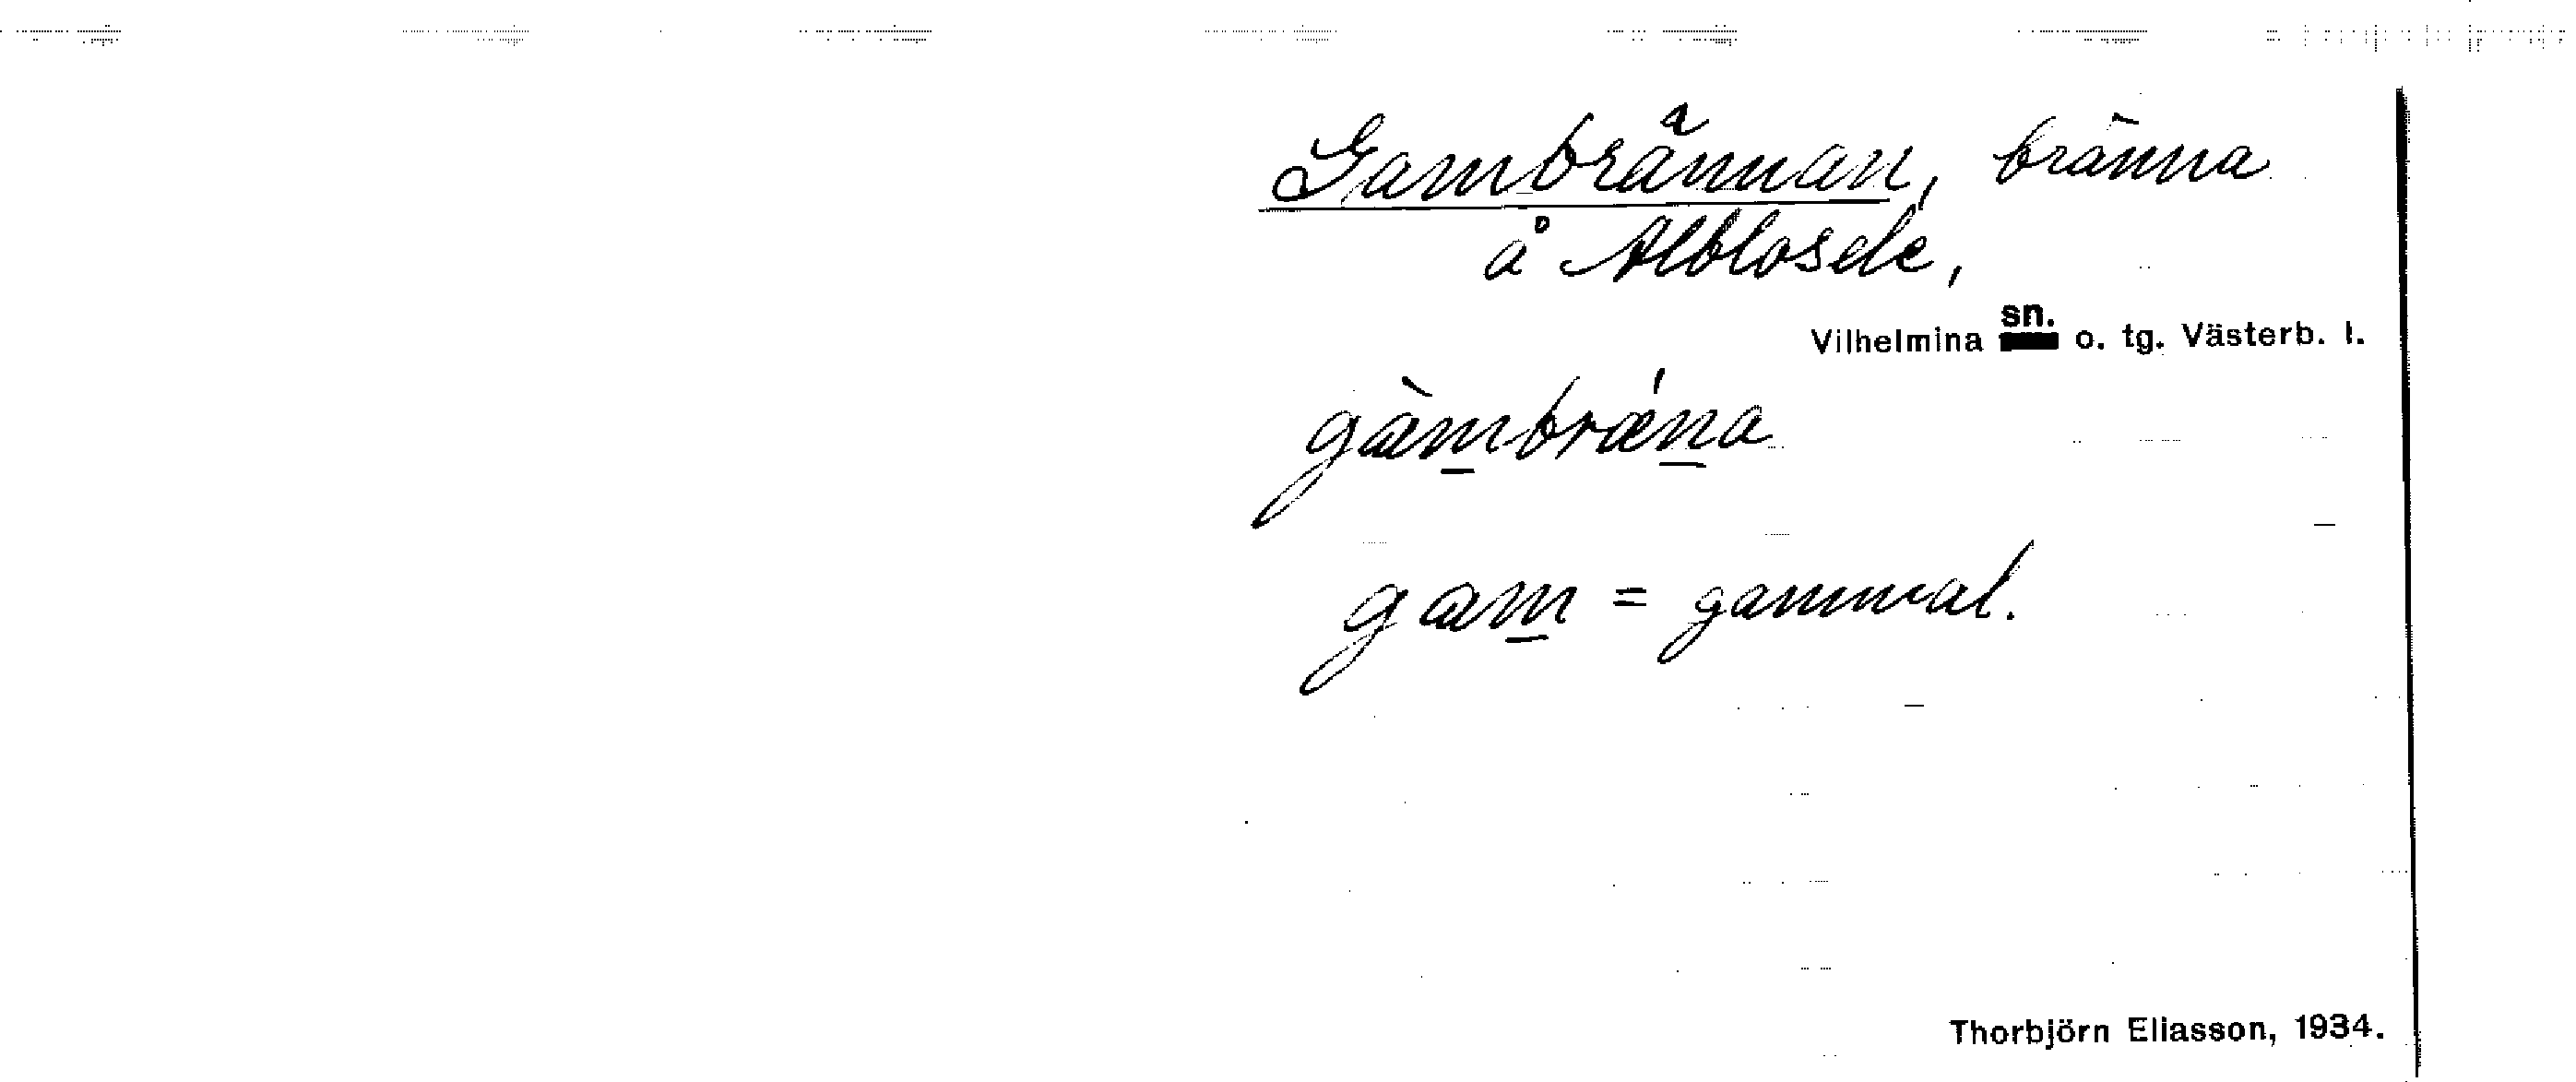 Gambrännan, bränna
å Alblosele,
Vilhelmina sn. o. tg. Västerb. l.
gàmbrǽna
gam = gammal.
Thorbjörn Eliasson, 1934.